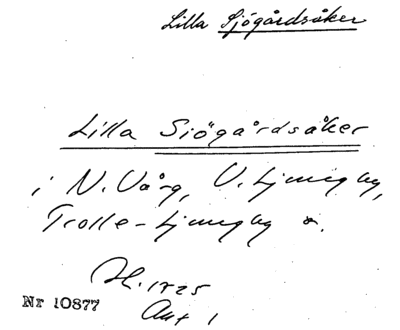 Lilla Sjögårdsåker
Lilla Sjögårdsåker
i N. Vång, V. Ljungby,
Trolle-Ljungby
1725
Nr 10877
Akt 1